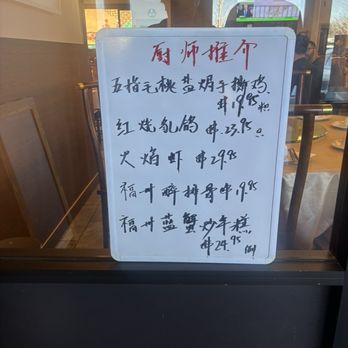 厨师推介
五指毛桃盐焗手撕鸡
$19.95
红烧乳鸽 $23.95
火焰虾 $29.95
福州醉排骨 $19.95
福州蓝蟹炒年糕
$24.95